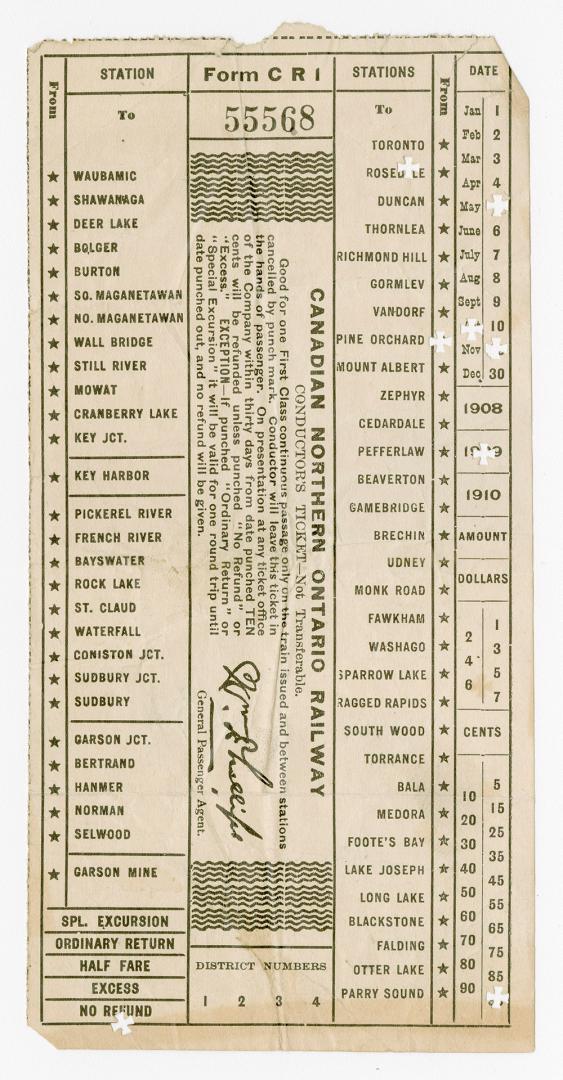 STATION
From
To
WAUBAMIC
SHAWANAGA
DEER LAKE
BOLGER
BURTON
SO. MAGANETAWAN
NO. MAGANETAWAN
WALL BRIDGE
STILL RIVER
MOWAT
CRANBERRY LAKE
KEY JCT.
KEY HARBOR
PICKEREL RIVER
FRENCH RIVER
BAYSWATER
ROCK LAKE
ST. CLAUD
WATERFALL
CONISTON JCT.
SUDBURY JCT.
SUDBURY
GARSON JCT.
BERTRAND
HANMER
NORMAN
SELWOOD
GARSON MINE
SPL. EXCURSION
ORDINARY RETURN
HALF FARE
EXCESS
NO REFUND
Form C R 1
55568
CANADIAN NORTHERN ONTARIO RAILWAY
CONDUCTOR'S TICKET—Not Transferable.
Good for one First Class continuous passage only on the train issued and between stations
cancelled by punch mark. Conductor will leave this ticket in
the hands of passenger. On presentation at any ticket office
of the Company within thirty days from date punched TEN
cents will be refunded unless punched "No Refund" or
"Excess." EXCEPTION—If punched "Ordinary Return" or
"Special Excursion" it will be valid for one round trip until
date punched out, and no refund will be given.
Wm. Phillips
General Passenger Agent.
DISTRICT NUMBERS
1 2 3 4
STATIONS
From
To
TORONTO
ROSEDALE
DUNCAN
THORNLEA
RICHMOND HILL
GORMLEV
VANDORF
PINE ORCHARD
MOUNT ALBERT
ZEPHYR
CEDARDALE
PEFFERLAW
BEAVERTON
GAMEBRIDGE
BRECHIN
UDNEY
MONK ROAD
FAWKHAM
WASHAGO
SPARROW LAKE
RAGGED RAPIDS
SOUTH WOOD
TORRANCE
BALA
MEDORA
FOOTE'S BAY
LAKE JOSEPH
LONG LAKE
BLACKSTONE
FALDING
OTTER LAKE
PARRY SOUND
DATE
Jan 1
Feb 2
Mar 3
Apr 4
May
June 6
July 7
Aug 8
Sept 9
10
Nov
Dec 30
1908
1909
1910
AMOUNT
DOLLARS
1
2
3
4
5
6
7
CENTS
5
10
15
20
25
30
35
40
45
50
55
60
65
70
75
80
85
90